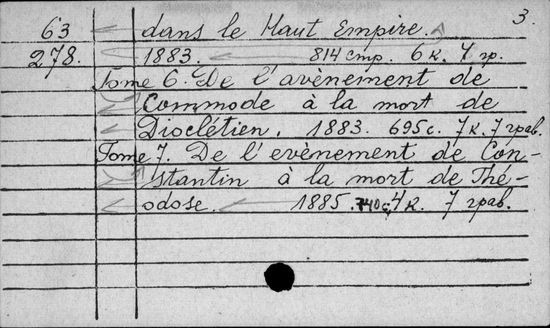 3.
63 dans le Haut Empire.
278. 1883. 814 стр. 6 к. 7 гр.
Tome 6. De l'avènement de
Commode à la mort de
Dioclétien. 1883. 695 с. 7 к. 7 грав.
Tome 7. De l'evènement de Con-
stantin à la mort de Thé-
odose. 1885. 740 с. 4 к. 7 грав.